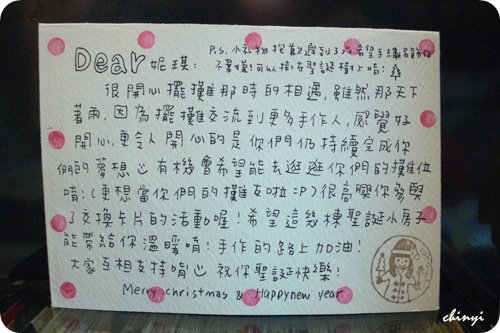 Dear 妮璞:
P.s. 小礼物抱歉遲到了
不嫌棄!可以掛在聖誕樹上唷!
很開心擺攤那時的相遇,雖然那天下
著雨,因為擺攤交流到更多手作人,感覺好
開心,更令人開心的是你們仍持續完成你
們的夢想心有機會希望能去逛逛你們的攤位
唷!(更想當你們的攤友啦:P)很高興你參與
了交換卡片的活動喔!希望這幾棟聖誕小房子
能帶給你溫暖唷!手作的路上加油!
大家互相支持唷心 祝你聖誕快樂!
Merry christmas & Happy new year
chinyi